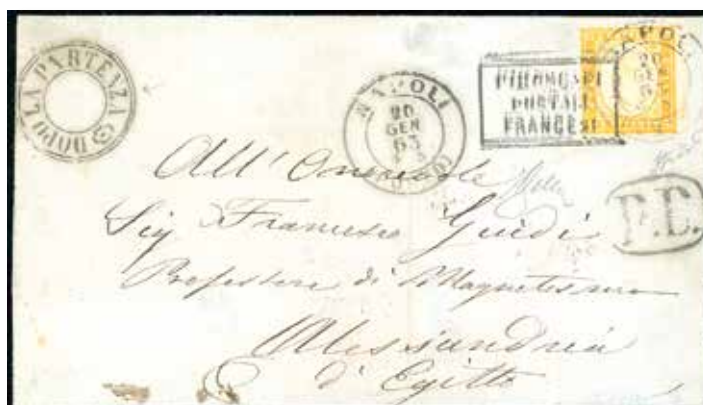 DOPO LA PARTENZA
NAPOLI
20
GEN
63
NAPOLI
20
GE
PIROSCAFI
POSTALI
FRANCESI
P.D.
All'Onorevole
Sig Francesco Guidi
Professore di Magnetismo
Alessandria
d'Egitto